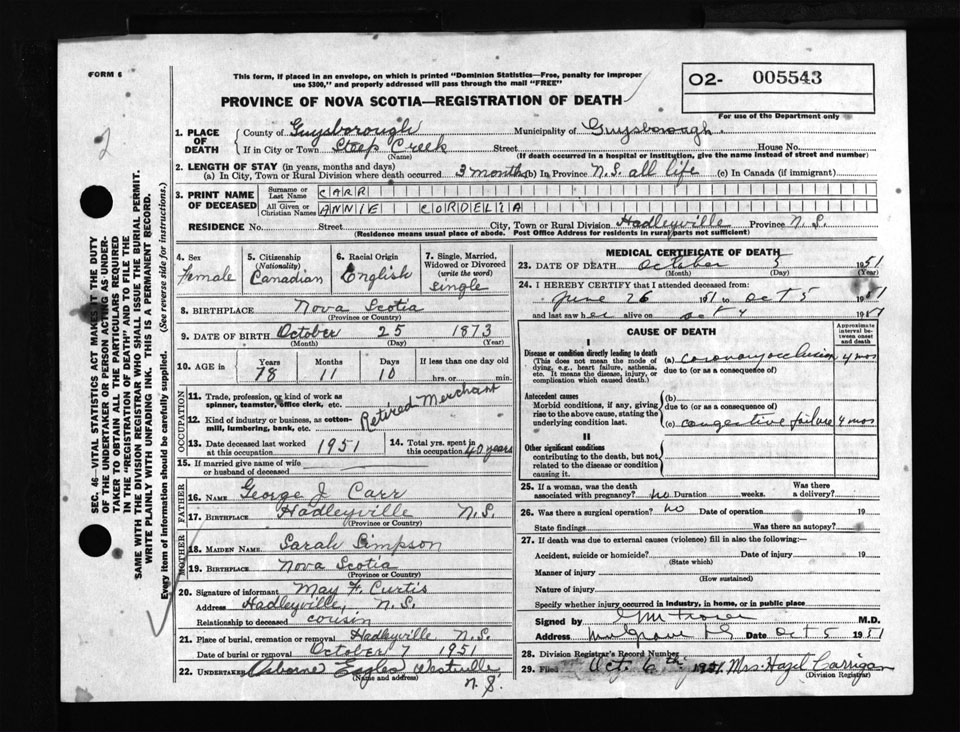 FORM 6
This form, if placed in an envelope, on which is printed "Dominion Statistics—Free, penalty for improper
use $300," and properly addressed will pass through the mail "FREE"
O2- 005543
For use of the Department only
PROVINCE OF NOVA SCOTIA—REGISTRATION OF DEATH
2
SEC. 46—VITAL STATISTICS ACT MAKES IT THE DUTY
OF THE UNDERTAKER OR PERSON ACTING AS UNDER-
TAKER TO OBTAIN ALL THE PARTICULARS REQUIRED
IN THE "REGISTRATION OF DEATH" AND TO FILE THE
SAME WITH THE DIVISION REGISTRAR WHO SHALL ISSUE THE BURIAL PERMIT.
WRITE PLAINLY WITH UNFADING INK. THIS IS A PERMANENT RECORD.
Every item of information should be carefully supplied. (See reverse side for instructions.)
1. PLACE OF DEATH
County of Guysborough Municipality of Guysborough
If in City or Town Steep Creek Street House No.
(Name) (If death occurred in a hospital or institution, give the name instead of street and number)
2. LENGTH OF STAY (in years, months and days)
(a) In City, Town or Rural Division where death occurred 3 months (b) In Province N.S. all life (c) In Canada (if immigrant)
3. PRINT NAME OF DECEASED
Surname or Last Name CARR
All Given or Christian Names ANNIE CORDELIA
RESIDENCE No. Street City, Town or Rural Division Hadleyville Province N.S.
(Residence means usual place of abode. Post Office Address for residents in rural parts not sufficient)
4. Sex Female
5. Citizenship (Nationality) Canadian
6. Racial Origin English
7. Single, Married, Widowed or Divorced (write the word) Single
8. BIRTHPLACE Nova Scotia
(Province or Country)
9. DATE OF BIRTH October 25 1873
(Month) (Day) (Year)
10. AGE in Years 78 Months 11 Days 10 If less than one day old hrs. or min.
OCCUPATION
11. Trade, profession, or kind of work as spinner, teamster, office clerk, etc.
12. Kind of industry or business, as cotton-mill, lumbering, bank, etc. Retired Merchant
13. Date deceased last worked at this occupation 1951
14. Total yrs. spent in this occupation 40 years
15. If married give name of wife or husband of deceased
FATHER
16. NAME George J. Carr
17. BIRTHPLACE Hadleyville N.S.
(Province or Country)
MOTHER
18. MAIDEN NAME Sarah Simpson
19. BIRTHPLACE Nova Scotia
(Province or Country)
20. Signature of informant May F. Curtis
Address Hadleyville, N.S.
Relationship to deceased cousin
21. Place of burial, cremation or removal Hadleyville N.S.
Date of burial or removal October 7 1951
22. UNDERTAKER Osborne Eagles Westville
(Name and address) N.S.
MEDICAL CERTIFICATE OF DEATH
23. DATE OF DEATH October 5 1951
(Month) (Day) (Year)
24. I HEREBY CERTIFY that I attended deceased from:
June 26 1951 to Oct 5 1951
and last saw her alive on Oct 4 1951
CAUSE OF DEATH
Approximate interval between onset and death
I
Disease or condition directly leading to death
(This does not mean the mode of dying, e.g., heart failure, asthenia, etc. It means the disease, injury, or complication which caused death.)
(a) coronary occlusion 4 mos
due to (or as a consequence of)
Antecedent causes
Morbid conditions, if any, giving rise to the above cause, stating the underlying condition last.
(b)
due to (or as a consequence of)
(c) congestive failure 4 mos
II
Other significant conditions
contributing to the death, but not related to the disease or condition causing it.
25. If a woman, was the death associated with pregnancy? no Duration weeks. Was there a delivery?
26. Was there a surgical operation? no Date of operation 19
State findings Was there an autopsy?
27. If death was due to external causes (violence) fill in also the following:—
Accident, suicide or homicide? Date of injury 19
(State which)
Manner of injury
(How sustained)
Nature of injury
Specify whether injury occurred in industry, in home, or in public place
Signed by M.D.
Address Date Oct 5 1951
28. Division Registrar's Record Number
29. Filed Oct. 6th 1951. Mrs. Hazel Carrigan
(Division Registrar)